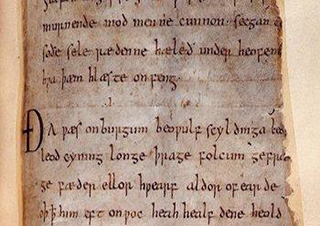 murnende mod men ne cunnon · secgan
soðe sele rædenne hæleð under heofen
hƿa þæm hlæste onfeng·
ÐA ƿæs onburgum beoƿulf scyldinga
leod cyning longe þrage folcum gefræ
ge fæder ellor hƿearf aldor of earde
oþ ꝥ him eft onƿoc heah healf dene heold